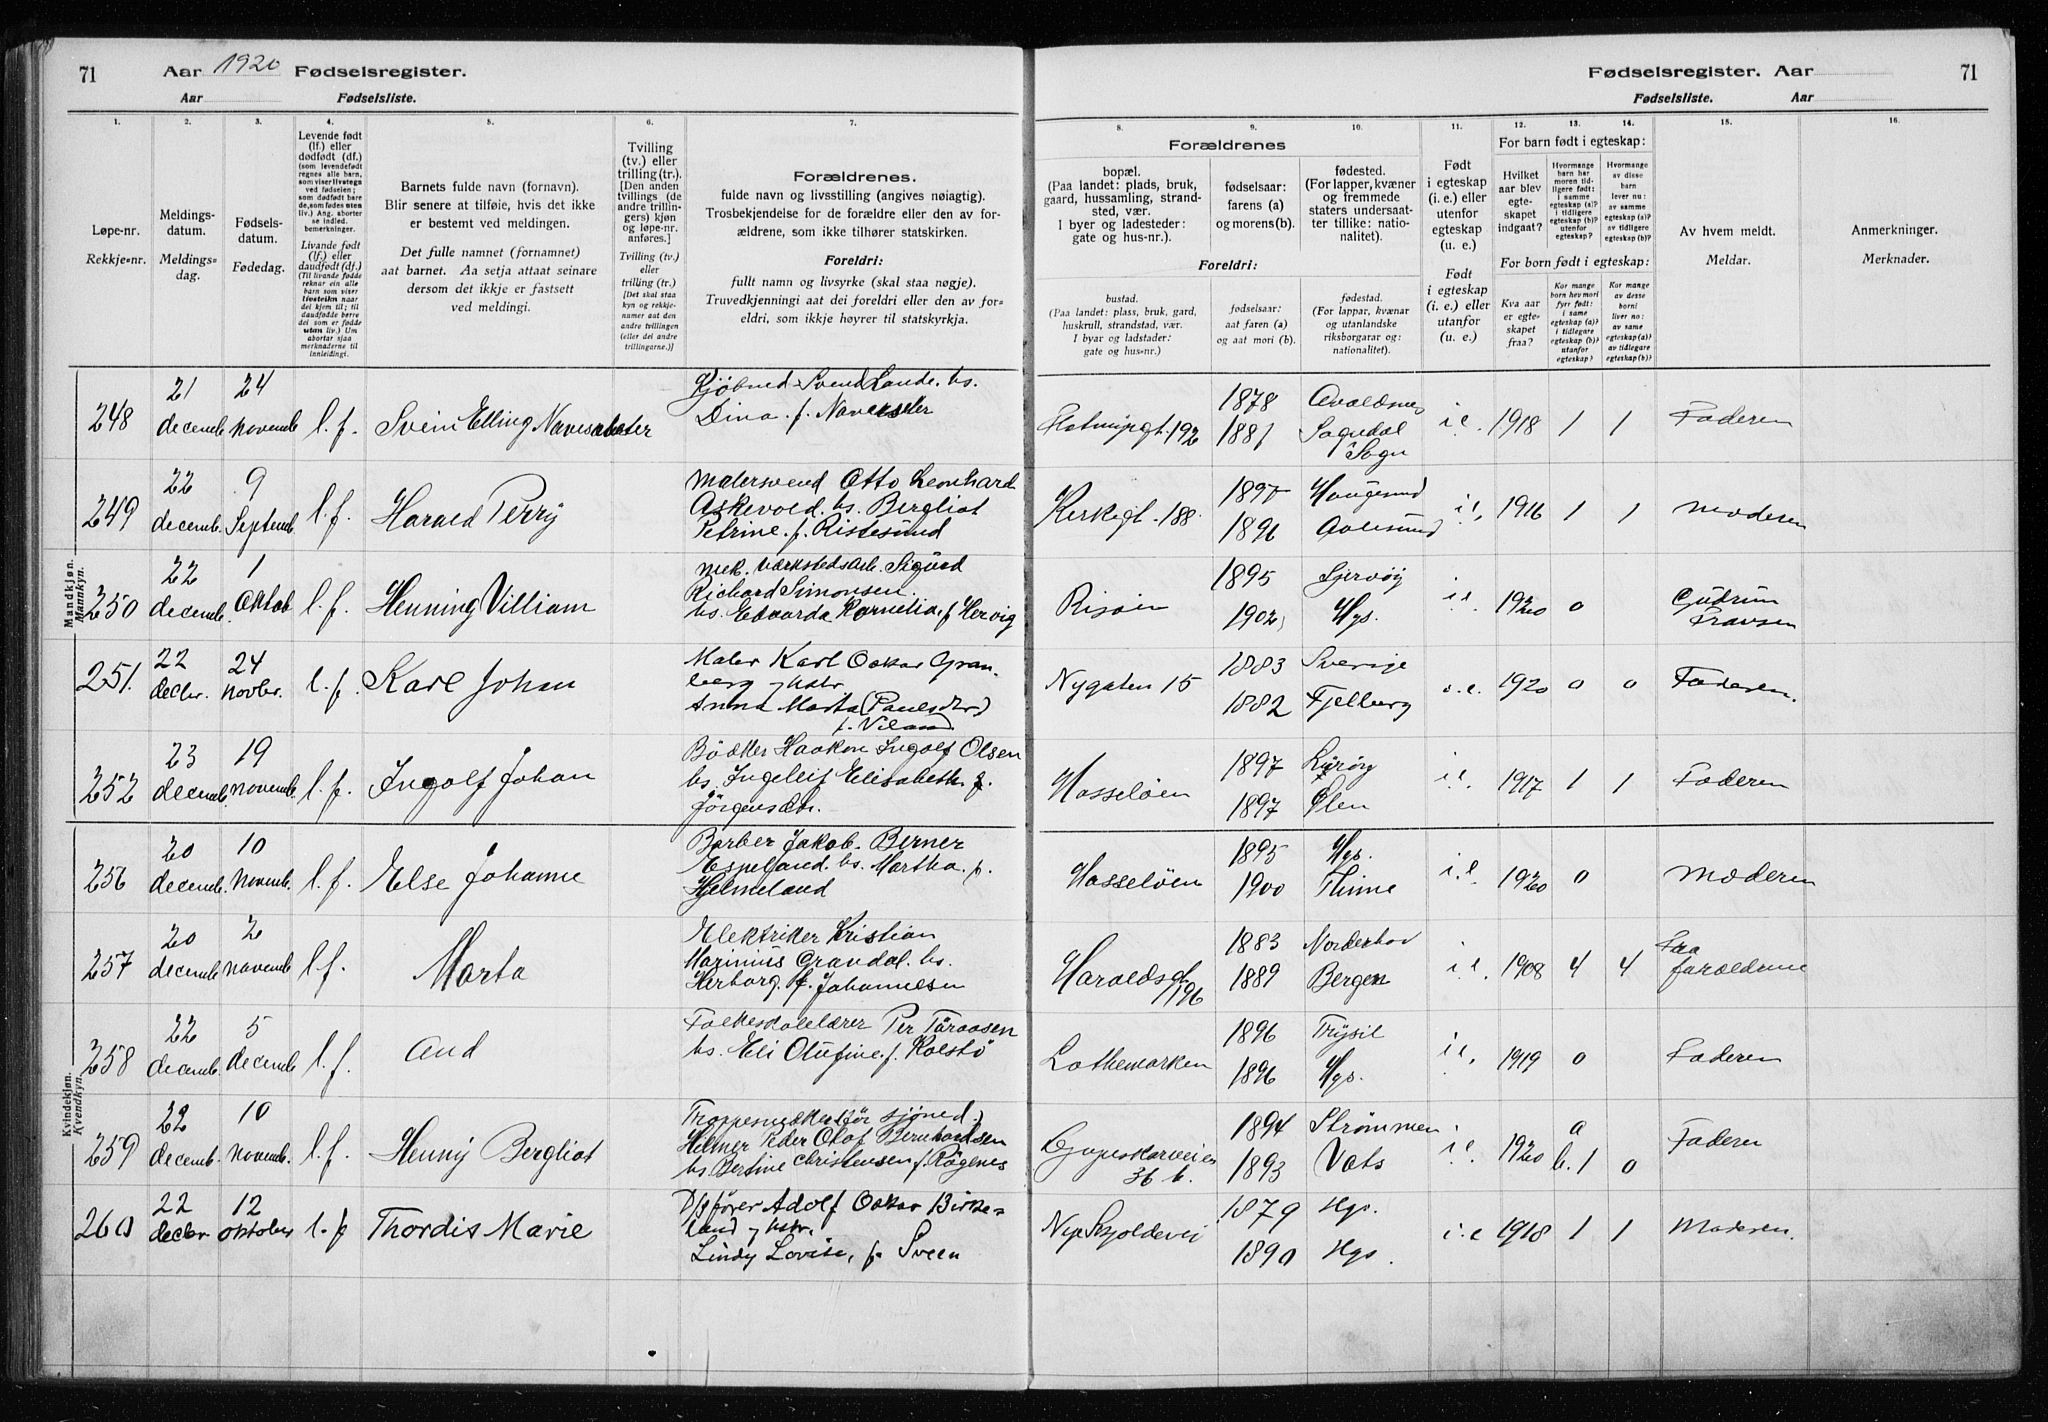 71 Aar 1920 Fødselsregister.
Aar Fødselsliste.
Fødselsregister. Aar 71
Fødselsliste. Aar
1. 2. 3. 4. 5. 6. 7. 8. 9. 10. 11. 12. 13. 14. 15. 16.
Løpe-nr.
Rekkje-nr.
Meldings-
datum.
Meldings-
dag.
Fødsels-
datum.
Fødedag.
Levende født
(lf.) eller
dødfødt (df.)
(som levendefødt
regnes alle barn,
som viser livstegn
ved fødselen;
som dødfødt bare
de, som fødes uten
liv.) Ang. aborter
se indled.
bemerkninger.
Livande født
(lf.) eller
daudfødt (df.)
(Til livande fødde
reknar ein alle
barn som viser
livsteikn naar
dei kjem til; til
daudfødde berre
dei som er fødde
utan liv.) Um
abortar sjaa
merknaderne til
innleidingi.
Barnets fulde navn (fornavn).
Blir senere at tilføie, hvis det ikke
er bestemt ved meldingen.
Det fulle namnet (fornamnet)
aat barnet. Aa setja attaat seinare
dersom det ikkje er fastsett
ved meldingi.
Tvilling
(tv.) eller
trilling (tr.).
[Den anden
tvillings (de
andre trillin-
gers) kjøn
og løpe-nr.
anføres.]
Tvilling (tv.)
eller
trilling (tr.)
[Det skal staa
kyn og rekkje-
numer aat den
andre tvillingen
(eller dei andre
trillingarne.)]
Forældrenes.
fulde navn og livsstilling (angives nøiagtig).
Trosbekjendelse for de forældre eller den av for-
ældrene, som ikke tilhører statskirken.
Foreldri:
fullt namn og livsyrke (skal staa nøgje).
Truvedkjenningi aat dei foreldri eller den av for-
eldri, som ikkje høyrer til statskyrkja.
Forældrenes
bopæl.
(Paa landet: plads, bruk,
gaard, hussamling, strand-
sted, vær.
I byer og ladesteder:
gate og hus-nr.).
fødselsaar:
farens (a)
og morens (b).
fødested.
(For lapper, kvæner
og fremmede
staters undersaat-
ter tillike: natio-
nalitet).
Foreldri:
bustad.
(Paa landet: plass, bruk, gard,
huskrull, strandstad, vær.
I byar og ladstader:
gate og hus-nr.)
fødselsaar:
aat faren (a)
og aat mori (b).
fødestad.
(For lappar, kvænar
og utanlandske
riksborgarar og:
nationalitet).
Født
i egteskap
(i. e.) eller
utenfor
egteskap
(u. e.)
Født
i egteskap
(i. e.) eller
utanfor
egteskap
(u. e.)
For barn født i egteskap:
Hvilket
aar blev
egte-
skapet
indgaat?
Hvormange
barn har
moren tid-
ligere født:
i samme
egteskap (a)?
i tidligere
egteskap (b)?
utenfor
egteskap?
Hvormange
av disse
barn
lever nu:
av samme
egteskap (a)?
av tidligere
egteskap (b)?
For born født i egteskap:
Kva aar
er egte-
skapet
fraa?
Kor mange
born hev mori
fyrr født:
i same
egteskap (a)?
i tidlegare
egteskap (b)?
utanfor
egteskap?
Kor mange
av desse
borni
liver no:
av same
egteskap (a)?
av tidlegare
egteskap (b)?
Av hvem meldt.
Meldar.
Anmerkninger.
Merknader.
Mandkjøn.
Mannkyn.
248 21 decemb. 24 novemb. l. f. Svein Elling
Svend Lande. hs.
Dina. f.
192 1878 1881 Sogndal
Sogn i e. 1918 1 1 Faderen
249 22 decemb. 9 Septemb. l. f. Harald Perry
Malersvend Otto Leonhard
Askevold. hs. Bergliot
Petrine. f. Ristesund
Kirkegt. 188. 1897 Haugesund 1896 Aalesund i e. 1916 1 1 Moderen
250 22 decemb. 1 Oktob. l. f. Henning Villiam
mek. værkstedsarb. Sigurd
Richard Simonsen.
hs. Edvarda Kornelia f Hervig
Risøen 1895 Skjervøy 1902 Hgs. i e. 1920 0 Gudrun
251. 22 decbr. 24 novbr. l. f. Karl Johan
Maler Karl Oskar Gran-
berg og hstr
Anna Marta (Paulsdtr)
Nygaten 15 1883 Sverige 1882 Fjelberg i. e. 1920 0 0 Faderen.
252 23 decemb. 19 novemb. l. f. Ingolf Johan
Bødker Haakon Ingolf Olsen
hs. Ingeleif Elisabeth f.
Jørgensdtr.
Hasseløen 1897 Lurøy 1897 Ølen i e. 1917 1 1 Faderen
Kvindekjøn.
Kvendkyn.
256 20 decemb. 10 Novemb. l. f. Else Johanne
Barber Jakob Berner
Espeland. hs. Martha. f.
Helmeland
Hasseløen 1895 Hgs. 1900 i. e. 1920 0 Moderen
257 20 decemb. 2 novemb. l f. Marta
Elektriker Kristian
Marinius Grandal. hs.
Herborg. f. Johannesen
Haraldsgt.
196 1883 Norderhov 1889 Bergen i. e. 1908 4 4 Fra
forældrene
258 22 decemb. 5 decemb l. f. Aud
Folkeskolelærer Per Turaasen
hs. Eli Olufine. f. Kolstø
Lothemarken 1896 Trysil 1896 Hgs. i e. 1919 0 Faderen
259 22 decemb. 10 novemb. l. f. Henny Bergliot
Helmer Peder Olaf Bernhardsen
hs Bertine Christensen f. Røgenes
36 b. 1894 Strømmen 1893 Vats i e. 1920 a
b. 1 0 Faderen
260 22 decbr. 12 oktober l. f Thordis Marie
D/sfører Adolf Oskar Birke-
land og hstr,
Lindy Lovise, f. Sveen
Skjoldevei 1879 Hgs. 1890 Hgs. i. e 1918 1 1 Moderen.